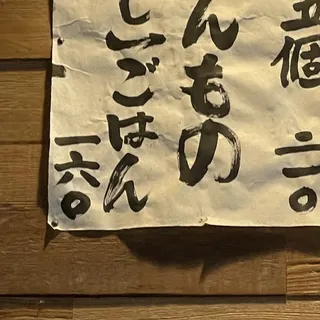 五個
二一〇
んもの
し」ごはん
一六〇